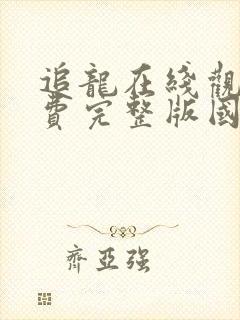 追龍在綫觀
費完整版國
齊亞強